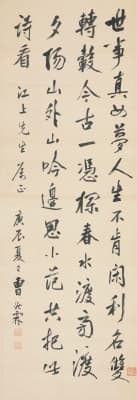 世事真如夢人生不肯閑利名雙
轉轂今古一憑欄春水渡旁渡
夕陽山外山吟邊思小范共把此
詩看 江上先生屬正
庚辰夏 曹汝霖